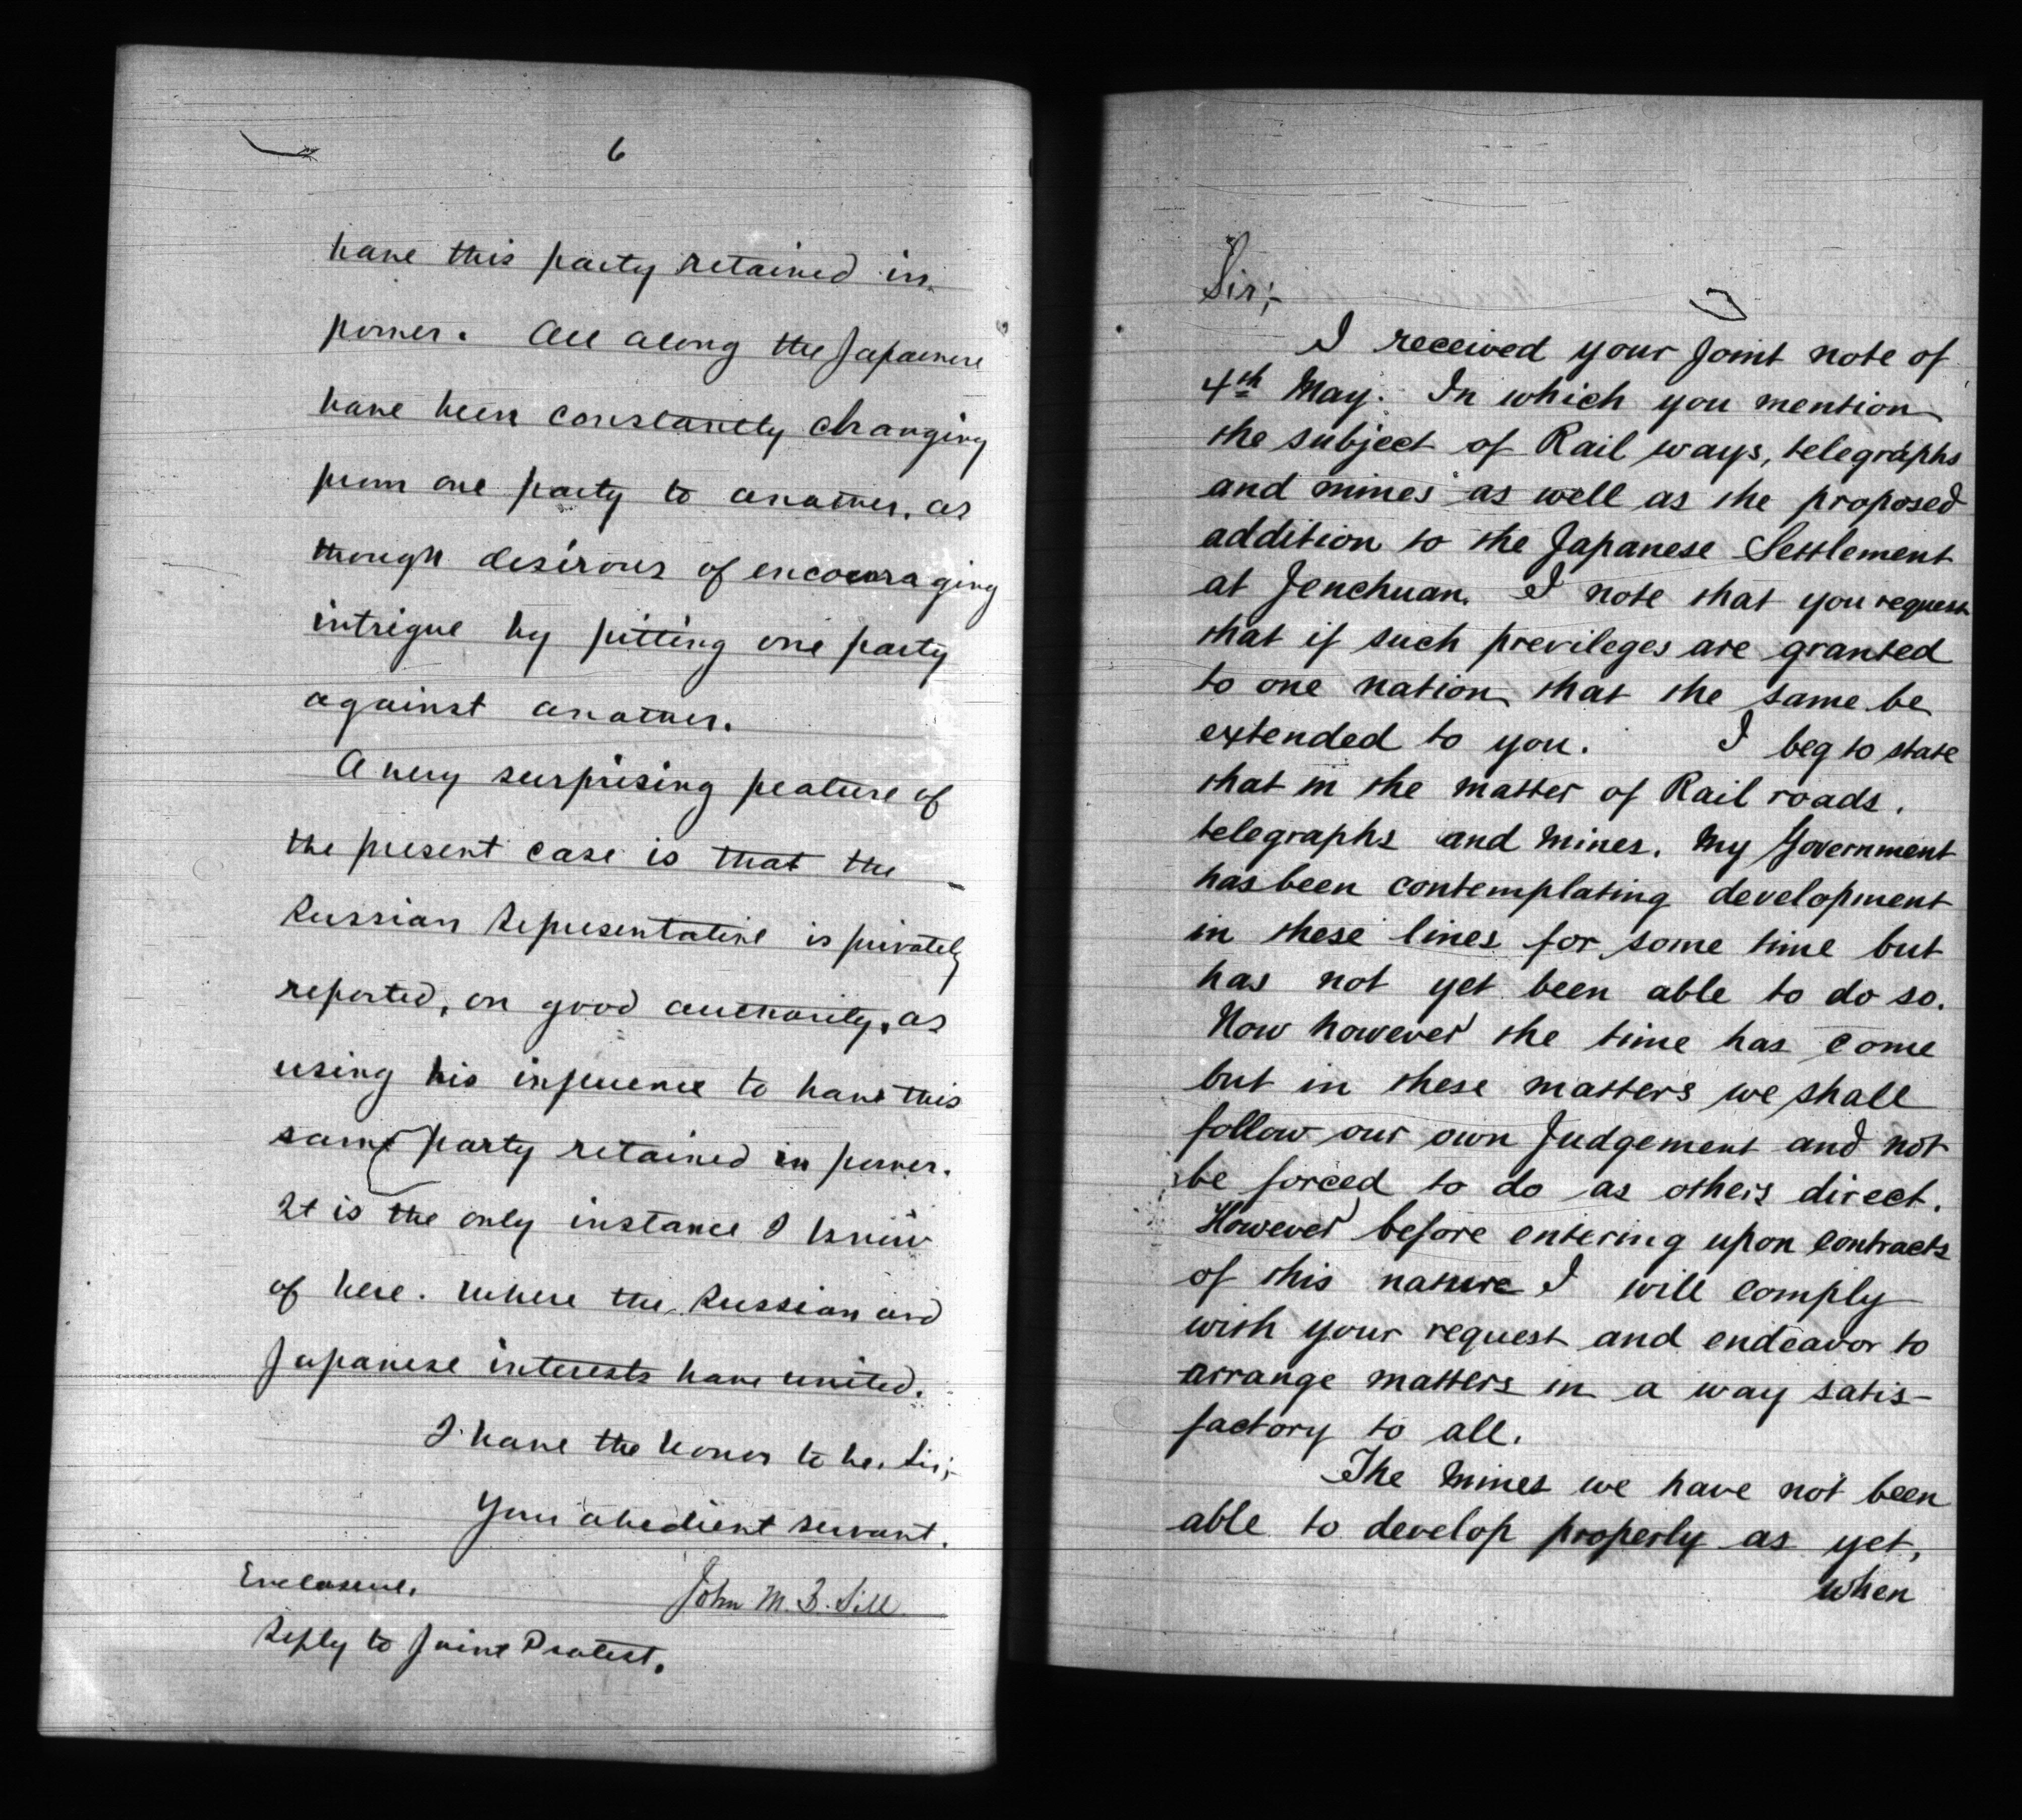 6
have this party retained in
power. All along the Japanese
have been constantly changing
from one party to another, as
though desirous of encouraging
intrigue by pitting one party
against another.
A very surprising feature of
the present case is that the
Russian Representative is privately
reported, on good authority, as
using his influence to have this
same party retained in power.
It is the only instance I know
of here. Where the Russian and
Japanese interests have united.
I have the honor to be, Sir,
Your obedient servant.
John M. B. Sill
Enclosure.
Reply to Joint Protest.
Sir;
I received your Joint note of
4th May. In which you mention
the subject of Rail ways, telegraphs
and mines as well as the proposed
addition to the Japanese Settlement
at Jenchuan. I note that you request
that if such previleges are granted
to one nation that the same be
extended to you. I beg to state
that in the matter of Rail roads,
telegraphs and Mines. My Government
has been contemplating development
in these lines for some time but
has not yet been able to do so.
Now however the time has come
but in these matters we shall
follow our own Judgement and not
be forced to do as others direct.
However before entering upon contracts
of this nature I will comply
with your request and endeavor to
arrange matters in a way satis-
factory to all.
The Mines we have not been
able to develop properly as yet,
when